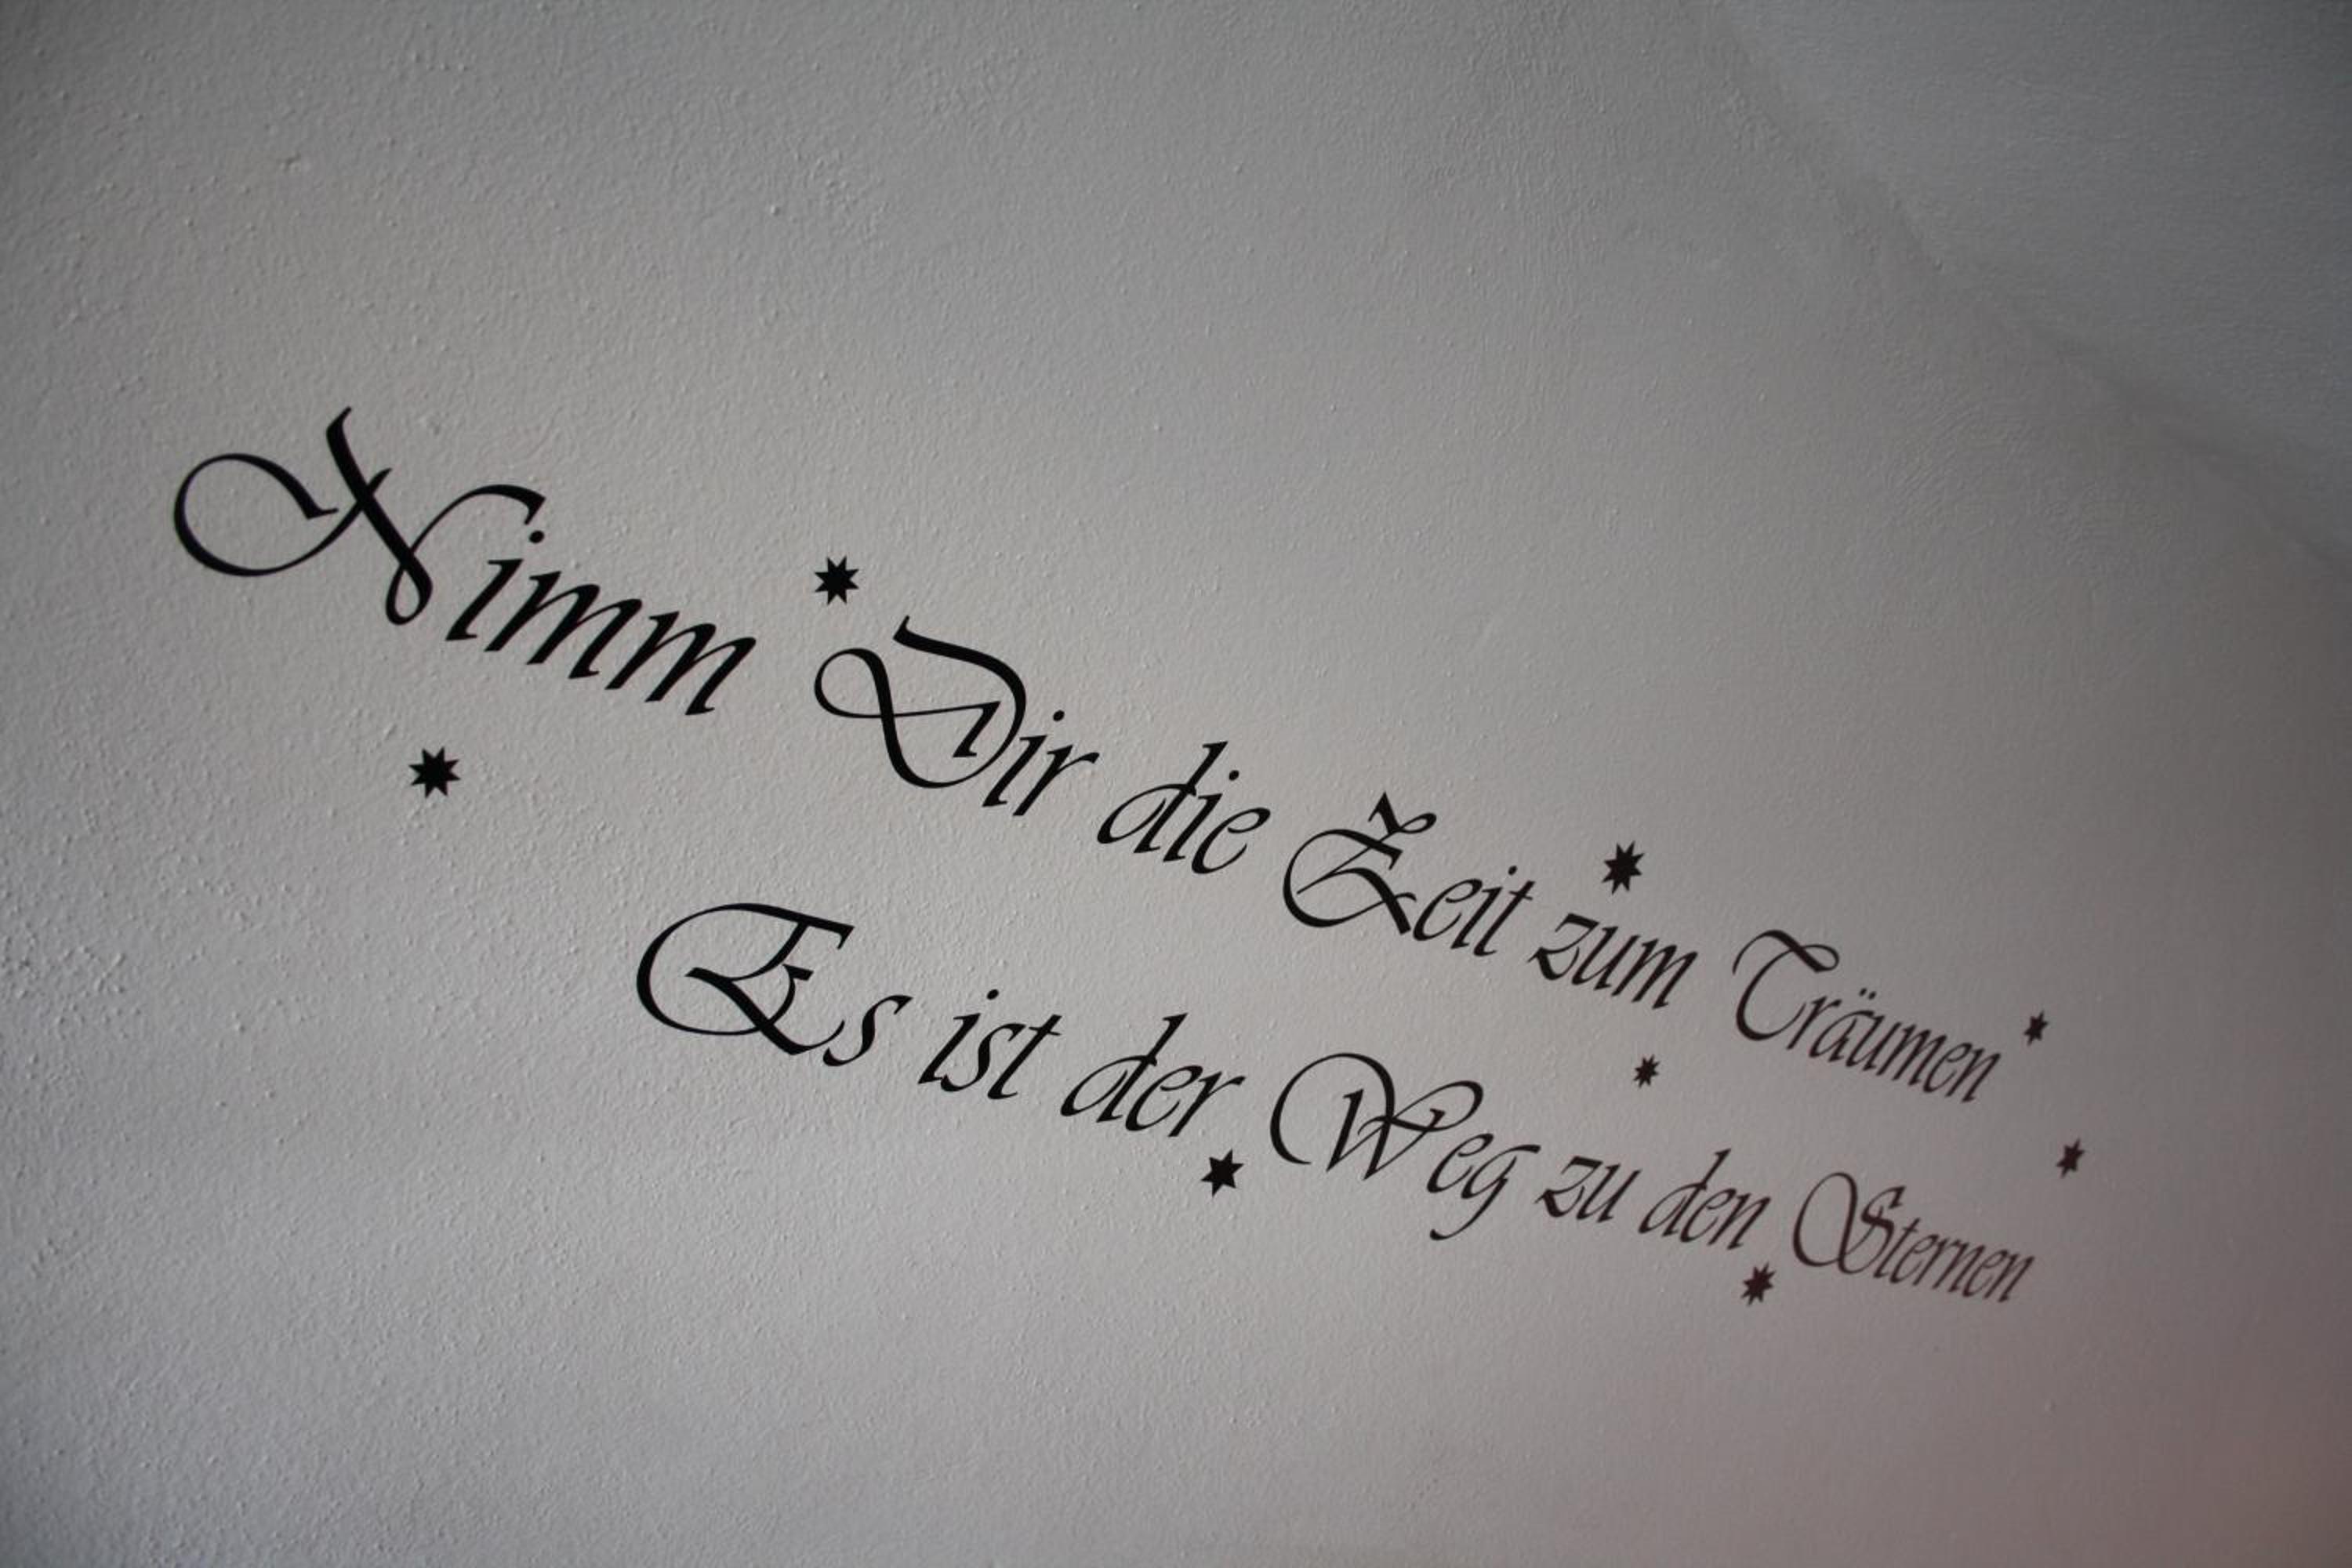 Nimm Dir die Zeit zum Träumen
Es ist der Weg zu den Sternen